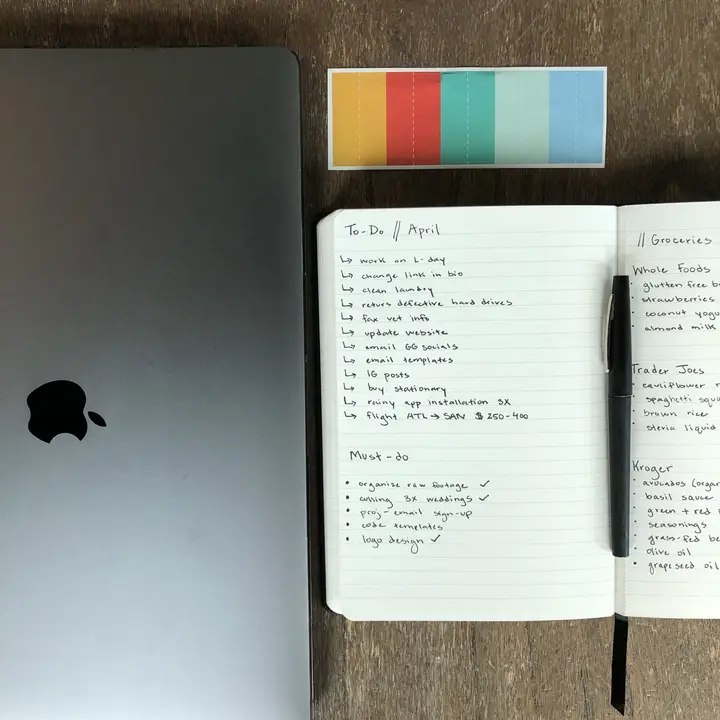 To-Do // April
↳ work on L-day
↳ change link in bio
↳ clean laundry
↳ return defective hard drives
↳ fax vet info
↳ update website
↳ email GG socials
↳ email templates
↳ IG posts
↳ buy stationary
↳ rainy app installation 3X
↳ flight ATL → SAN $250-400
Must-do
• organize raw footage ✓
• culling 3x weddings ✓
• proj-email sign-up
• code templates
• logo design ✓
// Groceries
Whole Foods
• glutten free b
• strawberries
• coconut yogu
• almond milk
Trader Joes
• cauliflower r
• spaghetti squa
• brown rice
• stevia liquid
Kroger
• avocados (organ
• basil sauce
• green + red
• seasonings
• grass-fed be
• olive oil
• grapeseed oil